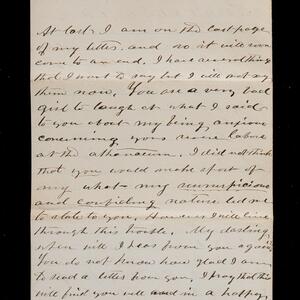 At last I am on the last page
of my letter. and so it will soon
come to an end. I have several things
that I want to say but I will not say
them now. You are a very bad
girl to laugh at what I said
to you about my being anxious
concerning your severe labors
at the athenaeum. I did not think
that you would make sport of
my what - my unsuspicious
and confiding nature led me
to state to you. However I will live
through this trouble. My darling
when will I hear from you again
You do not know how glad I am
to read a letter from you. I pray that this
will find you well and in a happy